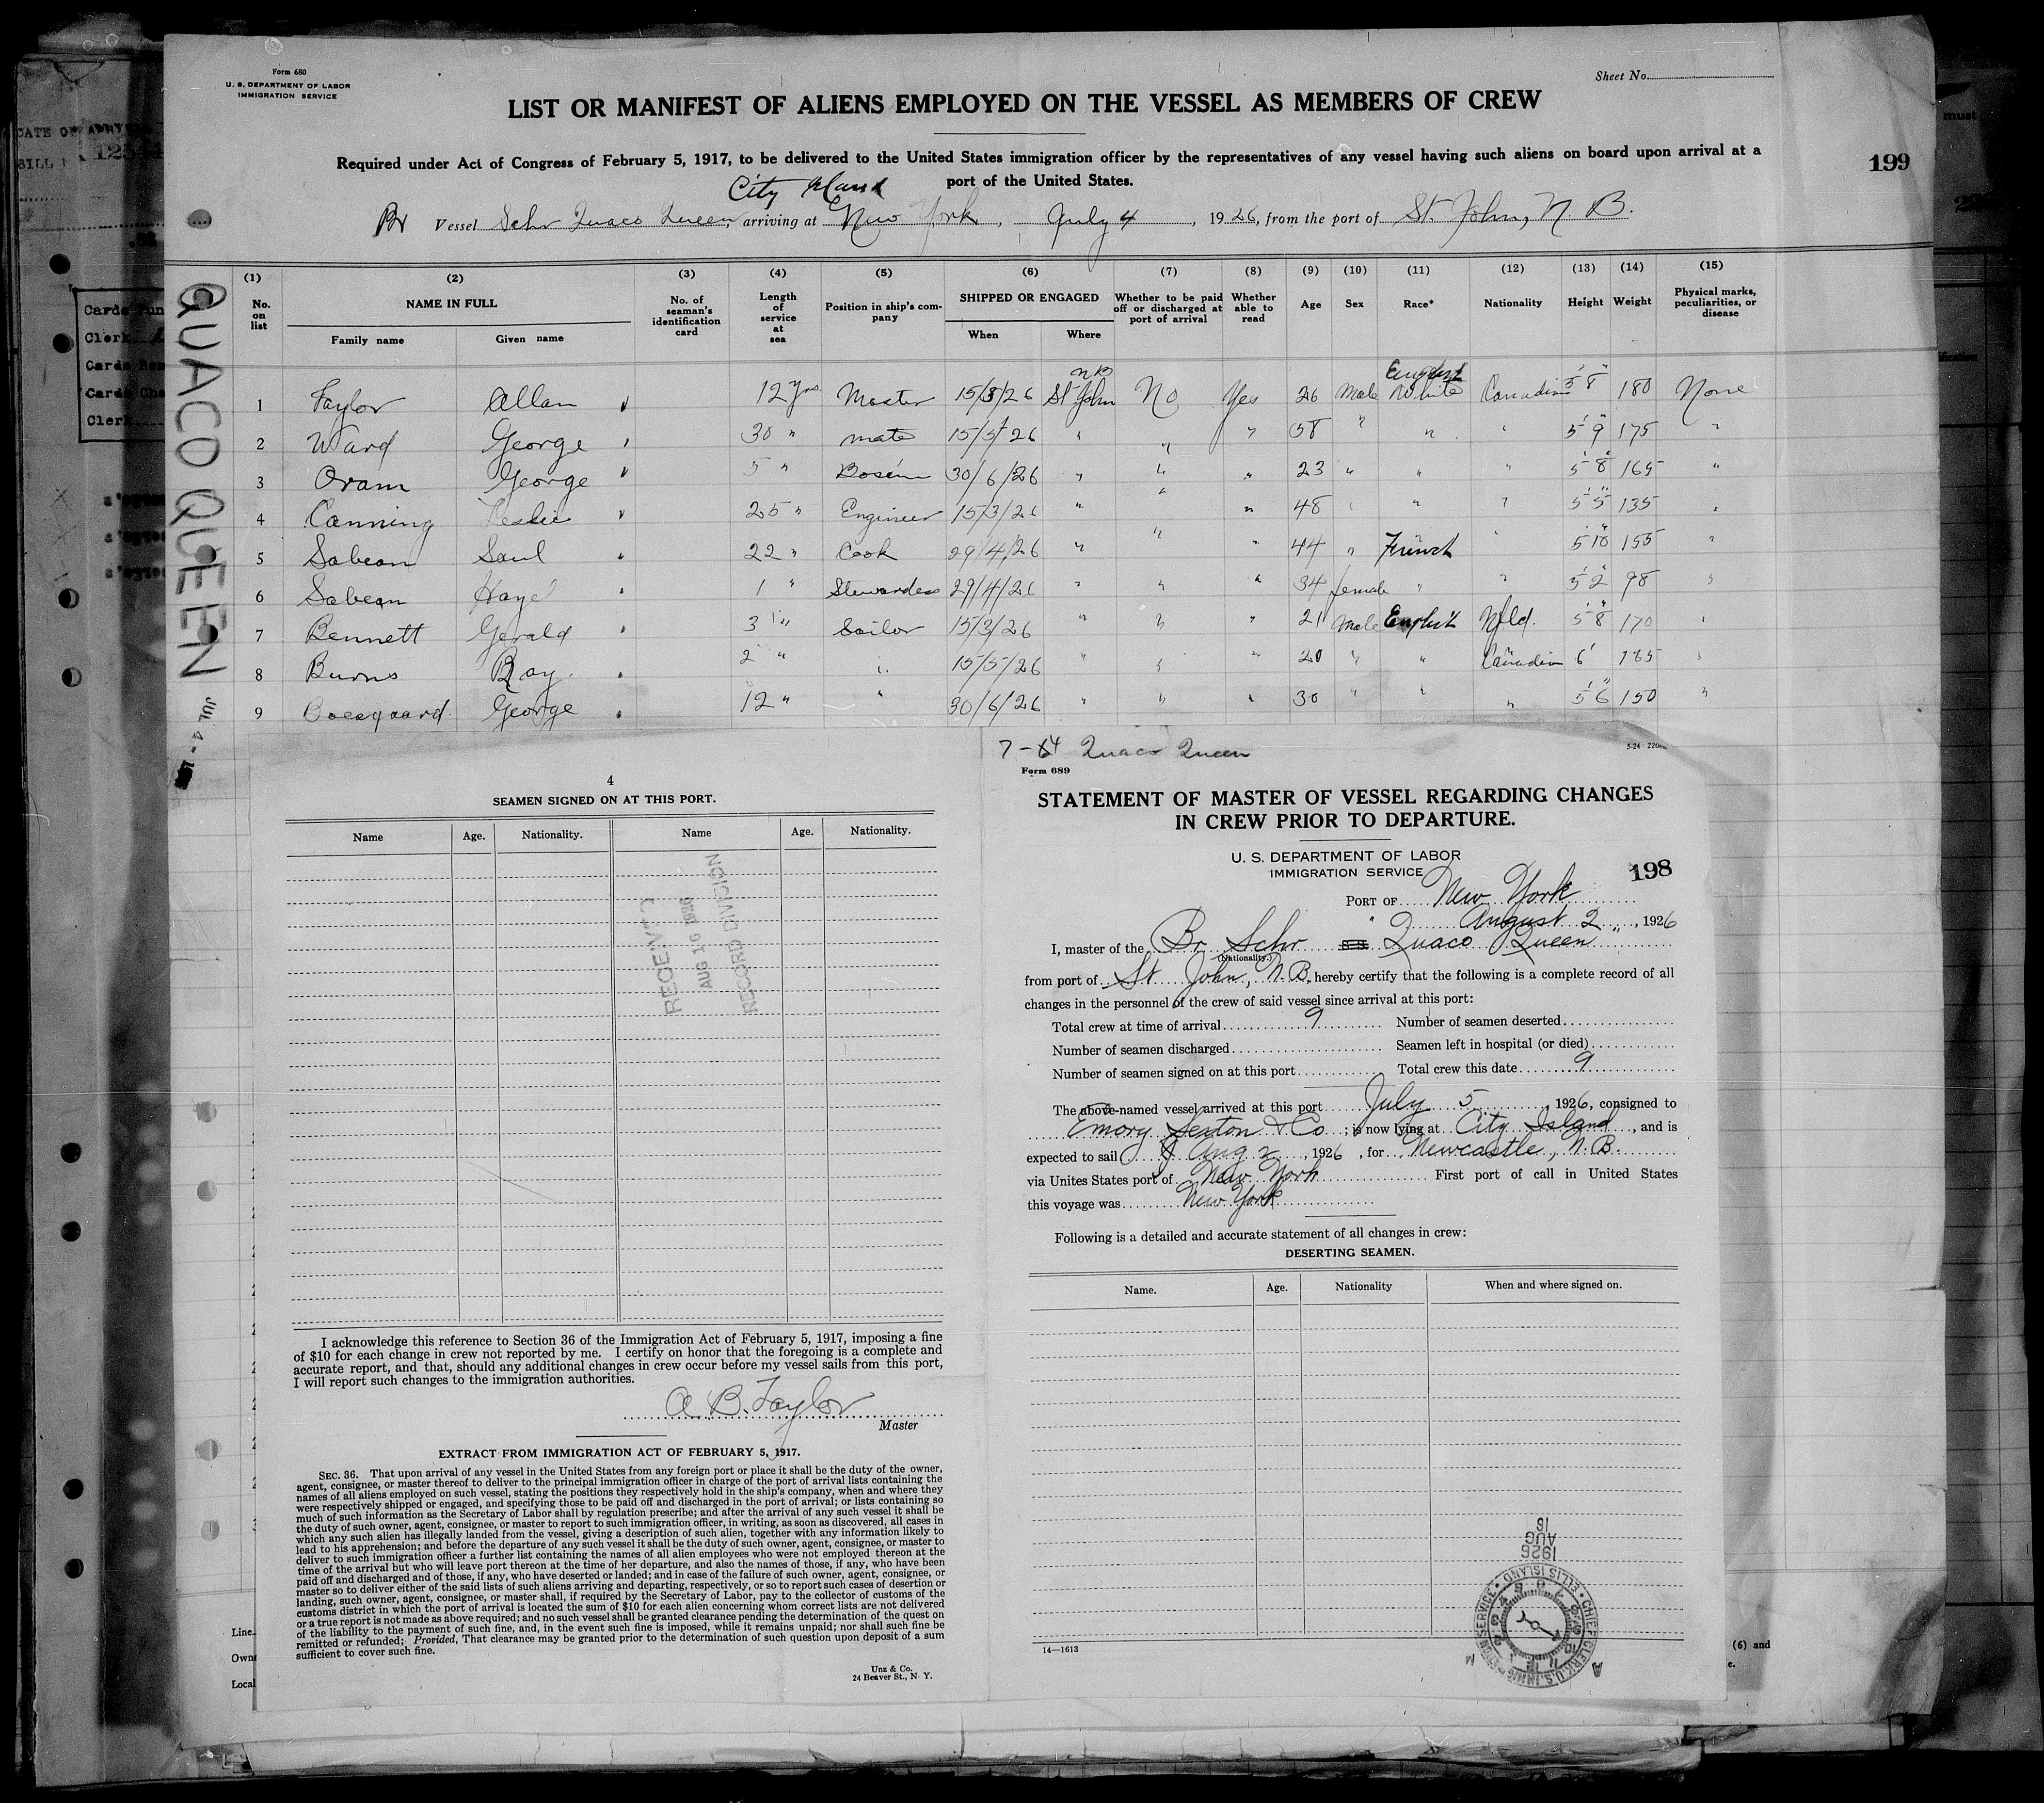 Form 680
U. S. DEPARTMENT OF LABOR
IMMIGRATION SERVICE
Sheet No.
LIST OR MANIFEST OF ALIENS EMPLOYED ON THE VESSEL AS MEMBERS OF CREW
Required under Act of Congress of February 5, 1917, to be delivered to the United States immigration officer by the representatives of any vessel having such aliens on board upon arrival at a
port of the United States.
199
City Island
Br Vessel Schr Quaco Queen, arriving at New York, July 4, 1926, from the port of St. John, N. B.
QUACO QUEEN
JUL 4 -
(1) (2) (3) (4) (5) (6) (7) (8) (9) (10) (11) (12) (13) (14) (15)
No. on list NAME IN FULL Family name Given name No. of seaman's identification card Length of service at sea Position in ship's company SHIPPED OR ENGAGED When Where Whether to be paid off or discharged at port of arrival Whether able to read Age Sex Race* Nationality Height Weight Physical marks, peculiarities, or disease
1 Taylor Allan 12 yrs Master 15/3/26 St. John NB No Yes 26 Male English White Canadian 5' 8" 180 None
2 Ward George 30 " mate 15/5/26 " " " 58 " " " 5' 9" 175 "
3 Oram George 5 " Bosėm 30/6/26 " " " 23 " " " 5' 8" 165 "
4 Canning Leslie 25 " Engineer 15/3/26 " " " 48 " " " 5' 5" 135 "
5 Sabean Saul 22 " Cook 29/4/26 " " " 44 " French " 5' 10" 155 "
6 Sabean Hazel 1 " Stewardess 29/4/26 " " " 34 female " " 5' 2" 98 "
7 Bennett Gerald 3 " Sailor 15/3/26 " " " 21 Male English Nfld. 5' 8" 170 "
8 Burns Ray 2 " " 15/5/26 " " " 20 " " Canadian 6' 185 "
9 Boesgaard George 12 " " 30/6/26 " " " 30 " " " 5' 6" 150 "
4
SEAMEN SIGNED ON AT THIS PORT.
Name Age. Nationality. Name Age. Nationality.
RECEIVED
AUG 16 1926
RECORD DIVISION
I acknowledge this reference to Section 36 of the Immigration Act of February 5, 1917, imposing a fine
of $10 for each change in crew not reported by me. I certify on honor that the foregoing is a complete and
accurate report, and that, should any additional changes in crew occur before my vessel sails from this port,
I will report such changes to the immigration authorities.
A. B. Taylor
Master
EXTRACT FROM IMMIGRATION ACT OF FEBRUARY 5, 1917.
SEC. 36. That upon arrival of any vessel in the United States from any foreign port or place it shall be the duty of the owner,
agent, consignee, or master thereof to deliver to the principal immigration officer in charge of the port of arrival lists containing the
names of all aliens employed on such vessel, stating the positions they respectively hold in the ship's company, when and where they
were respectively shipped or engaged, and specifying those to be paid off and discharged in the port of arrival; or lists containing so
much of such information as the Secretary of Labor shall by regulation prescribe; and after the arrival of any such vessel it shall be
the duty of such owner, agent, consignee, or master to report to such immigration officer, in writing, as soon as discovered, all cases in
which any such alien has illegally landed from the vessel, giving a description of such alien, together with any information likely to
lead to his apprehension; and before the departure of any such vessel it shall be the duty of such owner, agent, consignee, or master to
deliver to such immigration officer a further list containing the names of all alien employees who were not employed thereon at the
time of the arrival but who will leave port thereon at the time of her departure, and also the names of those, if any, who have been
paid off and discharged and of those, if any, who have deserted or landed; and in case of the failure of such owner, agent, consignee, or
master so to deliver either of the said lists of such aliens arriving and departing, respectively, or so to report such cases of desertion or
landing, such owner, agent, consignee, or master shall, if required by the Secretary of Labor, pay to the collector of customs of the
customs district in which the port of arrival is located the sum of $10 for each alien concerning whom correct lists are not delivered
or a true report is not made as above required; and no such vessel shall be granted clearance pending the determination of the quest on
of the liability to the payment of such fine, and, in the event such fine is imposed, while it remains unpaid; nor shall such fine be
remitted or refunded; Provided, That clearance may be granted prior to the determination of such question upon deposit of a sum
sufficient to cover such fine.
Unz & Co.
24 Beaver St., N. Y.
7-4 Quaco Queen
5-24 220
Form 689
STATEMENT OF MASTER OF VESSEL REGARDING CHANGES
IN CREW PRIOR TO DEPARTURE.
U. S. DEPARTMENT OF LABOR
IMMIGRATION SERVICE
198
PORT OF New York
August 2, 1926
I, master of the Br Schr S.S. Quaco Queen
(Nationality.)
from port of St. John, N.B. hereby certify that the following is a complete record of all
changes in the personnel of the crew of said vessel since arrival at this port:
Total crew at time of arrival 9 Number of seamen deserted
Number of seamen discharged Seamen left in hospital (or died)
Number of seamen signed on at this port Total crew this date 9
The above-named vessel arrived at this port July 5, 1926, consigned to
Emory Sexton & Co; is now lying at City Island, and is
expected to sail Aug 2, 1926, for Newcastle, N.B.
via Unites States port of New York First port of call in United States
this voyage was New York
Following is a detailed and accurate statement of all changes in crew:
DESERTING SEAMEN.
Name. Age. Nationality When and where signed on.
14—1613
1926
AUG
16
CHIEF CLERK, U.S. IMMIGRATION SERVICE • ELLIS ISLAND •
Line
Own
Local
(6) and